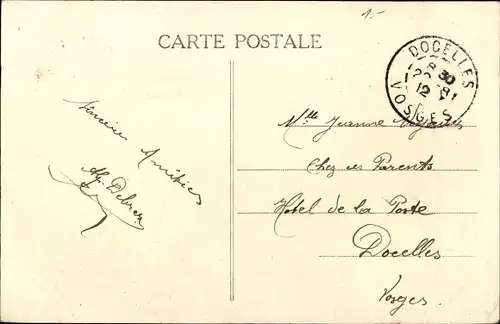 1-
CARTE POSTALE
DOCELLES
VOSGES
Sincère Amitiés
Mlle Jeanne
Chez ses Parents
Hotel de la Poste
Docelles
Vosges